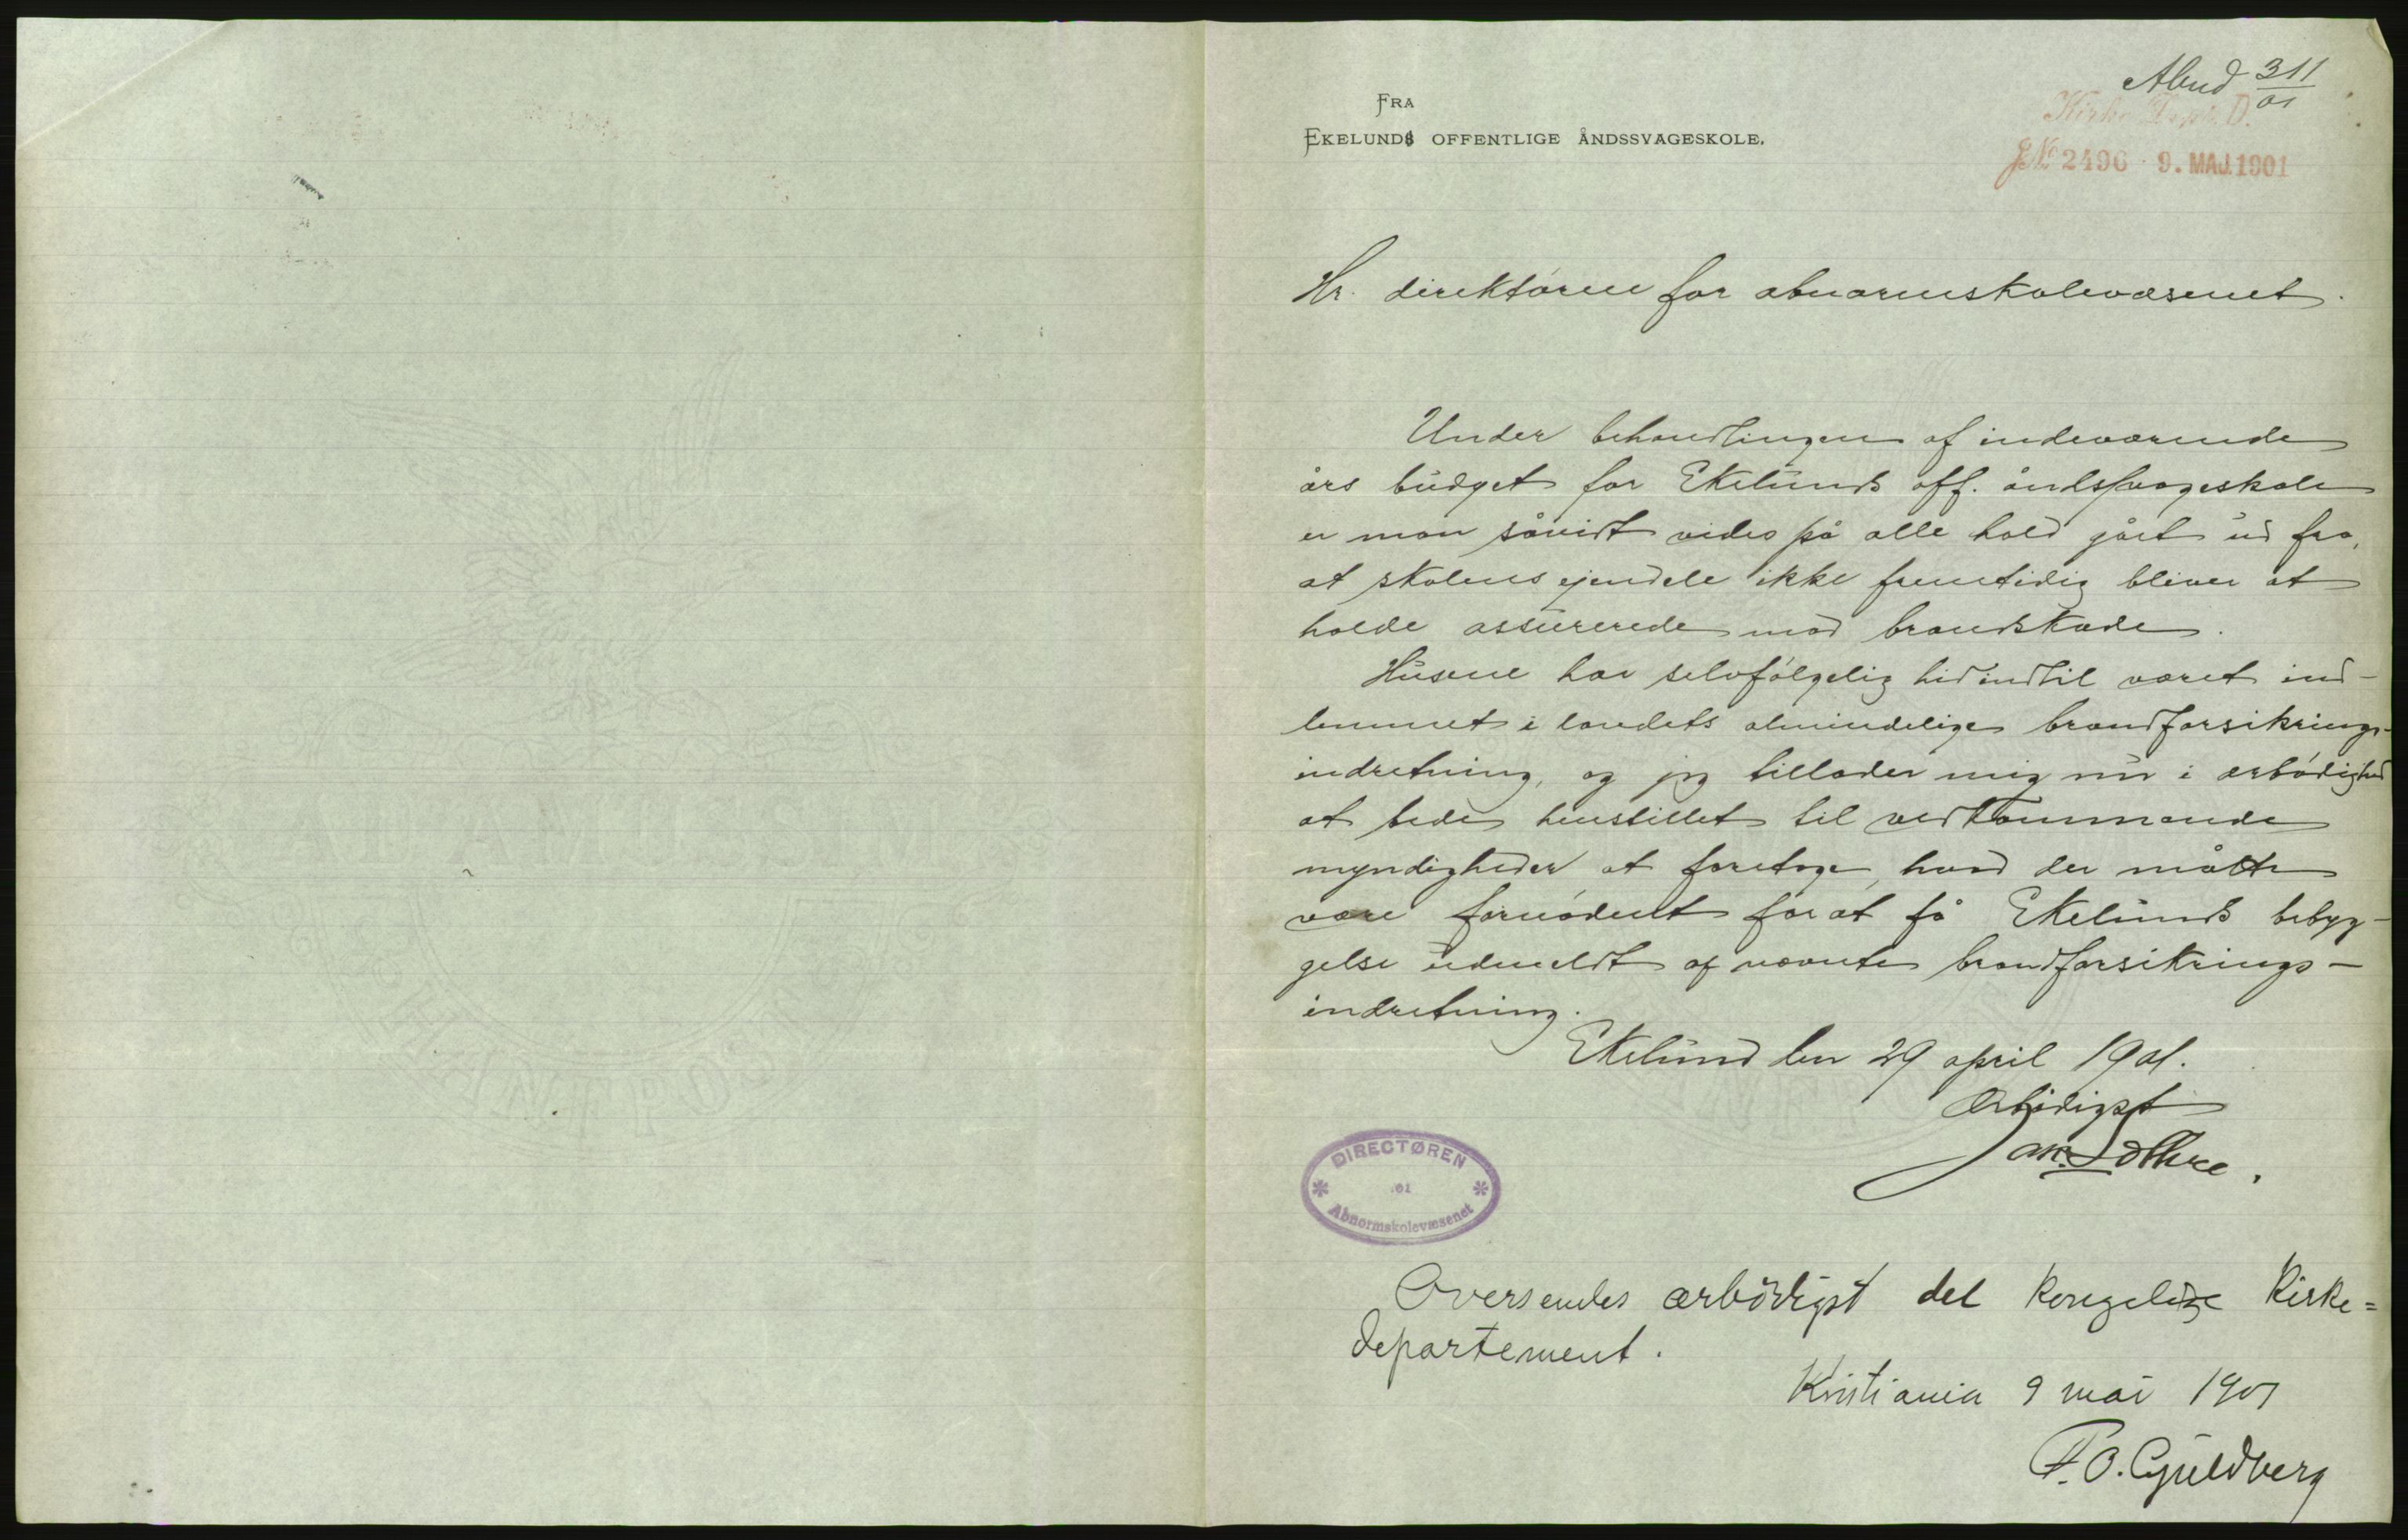 Abnd 311/01
FRA
EKELUNDS OFFENTLIGE ÅNDSSVAGESKOLE.
Kirke Dept. D.
JNo 2496 9. MAJ. 1901
Hr. direktøren for abnormskolevæsenet.
Under behandlingen af indeværende
års budget for Ekelunds off. åndssvageskole
er man såvidt vides på alle hold gået ud fra,
at skolens ejendele ikke fremtidig bliver at
holde assurerede mod brandskade.
Husene har selvfølgelig hidindtil været ind-
lemmet i landets almindelige brandforsikrings-
indretning, og jeg tillader mig nu i ærbødighed
at bede henstillet til vedkommende
myndigheder at foretage, hvad der måtte
være fornødent for at få Ekelunds bebyg-
gelse udmeldt af nævnte brandforsikrings-
indretning.
Ekelund den 29 april 1901.
Ærbødigst
Jak. Løthre.
DIRECTØREN
01
Abnormskolevæsenet
Oversendes ærbödigst det kongelige Kirke=
departement.
Kristiania 9 mai 1901
F.O. Guldberg